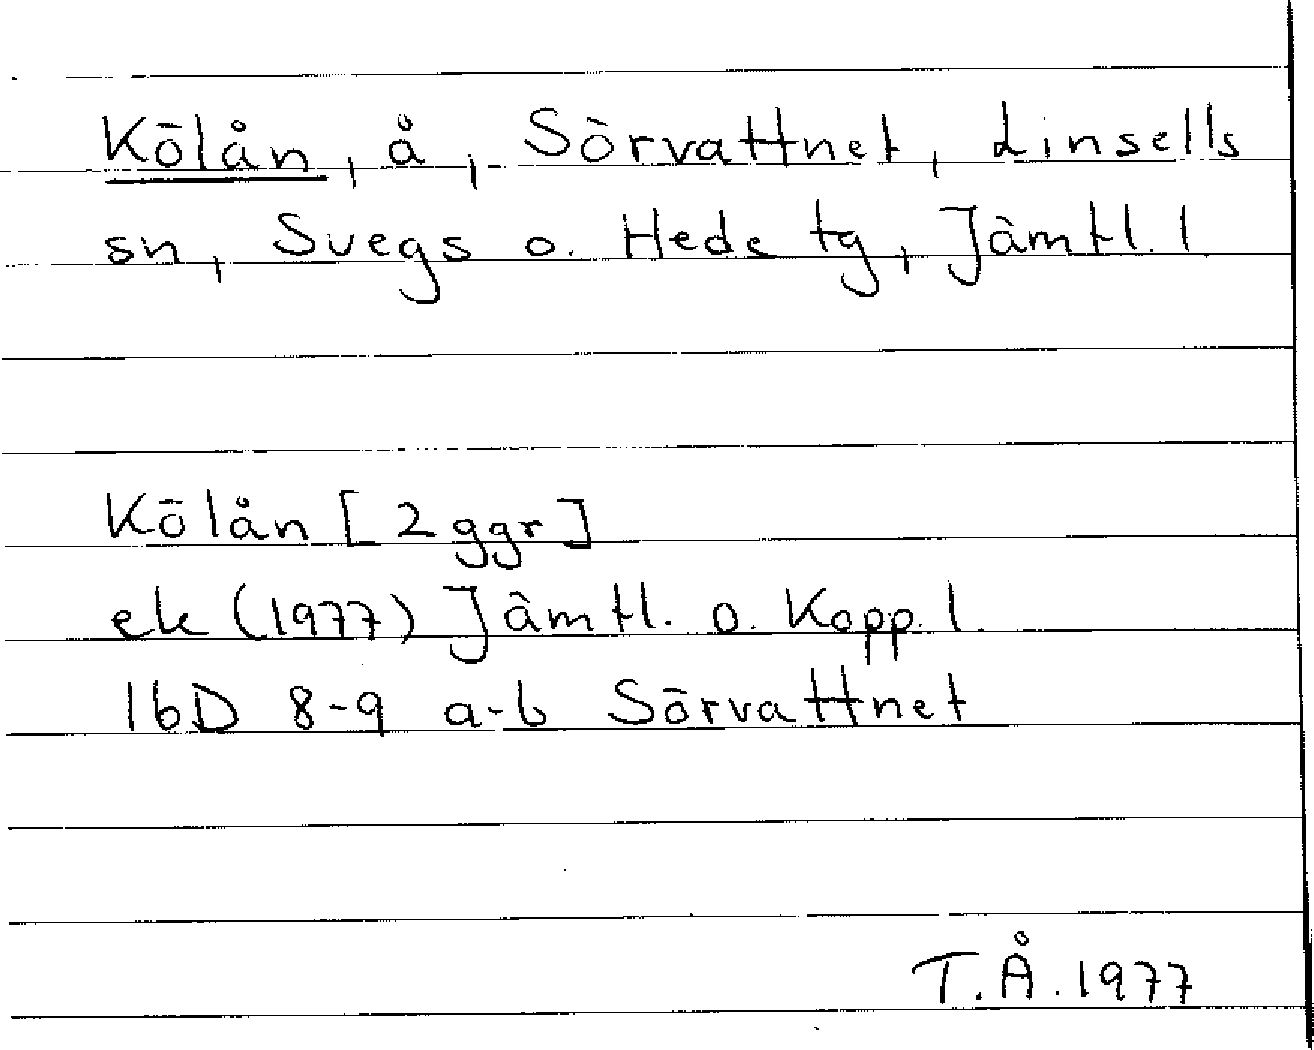 Kölån, å, Sörvattnet, Linsells
sn, Svegs o. Hede tg, Jämtl. l
Kölån [2 ggr]
ek (1977) Jämtl. o. Kopp. l.
16D 8-9 a-b Sörvattnet
T.Å. 1977